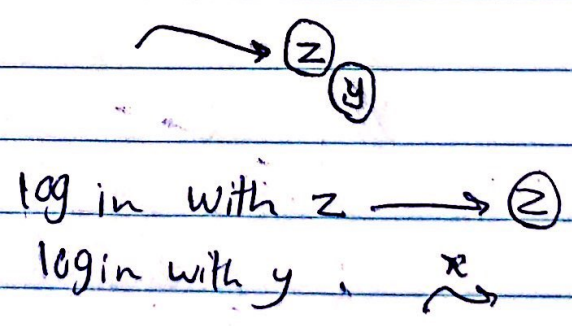 z
y
log in with z → z
login with y . x